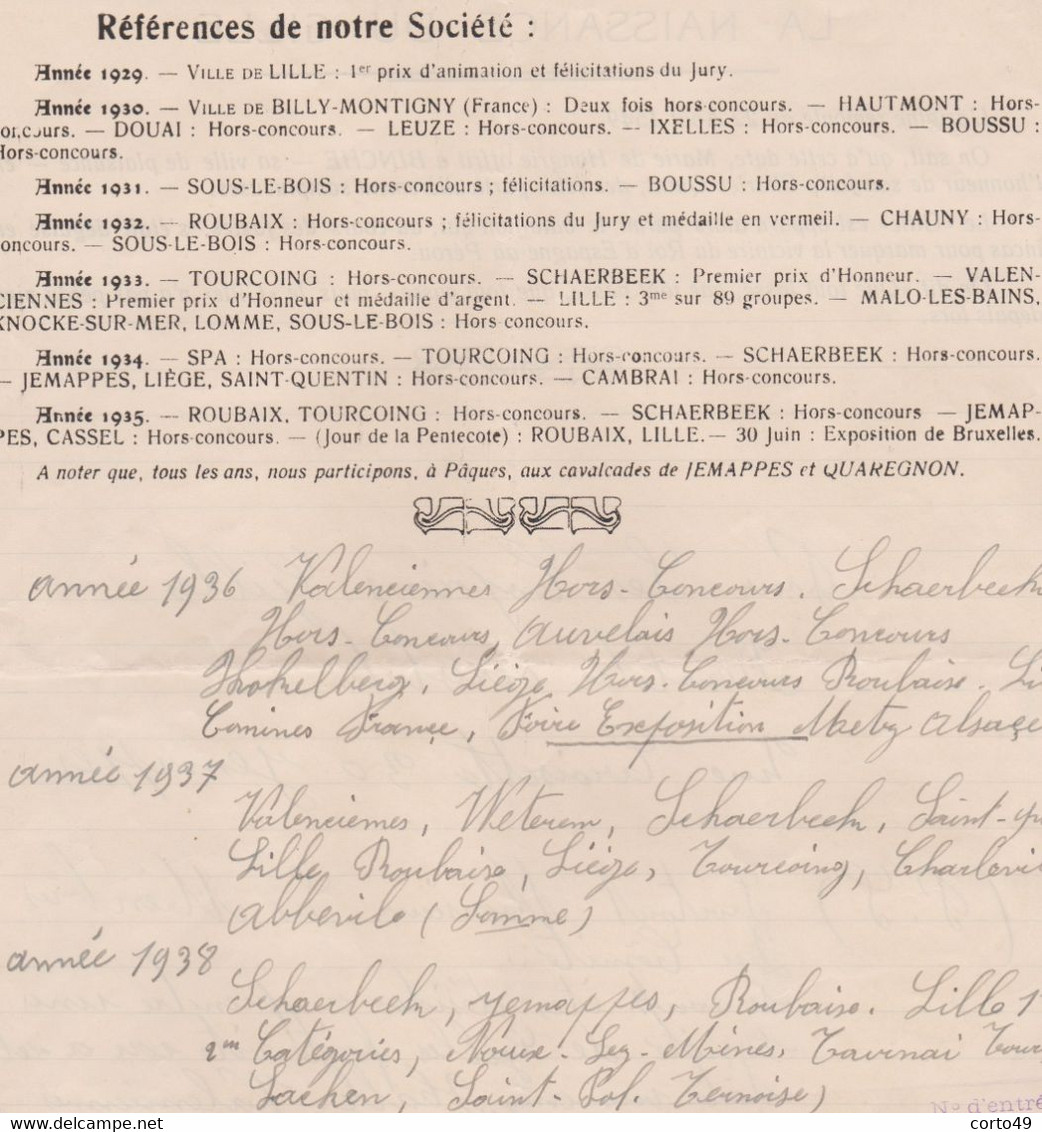 Références de notre Société :
Année 1929. — VILLE DE LILLE : 1er prix d'animation et félicitations du Jury.
Année 1930. — VILLE DE BILLY-MONTIGNY (France) : Deux fois hors-concours. — HAUTMONT : Hors-
concours. — DOUAI : Hors-concours. — LEUZE : Hors-concours. — IXELLES : Hors-concours. — BOUSSU :
Hors-concours.
Année 1931. — SOUS-LE-BOIS : Hors-concours ; félicitations. — BOUSSU : Hors-concours.
Année 1932. — ROUBAIX : Hors-concours ; félicitations du Jury et médaille en vermeil. — CHAUNY : Hors-
concours. — SOUS-LE-BOIS : Hors-concours.
Année 1933. — TOURCOING : Hors-concours. — SCHAERBEEK : Premier prix d'Honneur. — VALEN-
CIENNES : Premier prix d'Honneur et médaille d'argent. — LILLE : 3me sur 89 groupes. — MALO-LES-BAINS,
KNOCKE-SUR-MER, LOMME, SOUS-LE-BOIS : Hors-concours.
Année 1934. — SPA : Hors-concours. — TOURCOING : Hors-concours. — SCHAERBEEK : Hors-concours.
— JEMAPPES, LIÈGE, SAINT-QUENTIN : Hors-concours. — CAMBRAI : Hors-concours.
Année 1935. — ROUBAIX, TOURCOING : Hors-concours. — SCHAERBEEK : Hors-concours — JEMAP-
PES, CASSEL : Hors-concours. — (Jour de la Pentecote) : ROUBAIX, LILLE. — 30 Juin : Exposition de Bruxelles.
A noter que, tous les ans, nous participons, à Pâques, aux cavalcades de JEMAPPES et QUAREGNON.
année 1936 Valenciennes Hors-Concours. Schaerbeek
Hors-Concours, Auvelais Hors-Concours
Liége Hors-Concours Roubaix.
Comines France, Foire Exposition Metz Alsace
année 1937
Valenciennes, Weterem, Schaerbeek, Saint-
Lille Roubaix, Liége, Tourcoing, Charlevi
Abbevile (Somme)
année 1938
Schaerbeek, yemappes, Roubaix. Lille
2me Catégories, Noeux-Lez-Mines, Tavinai
Lacken, Saint-Pol. Ternoise)
N° d'entré
corto49